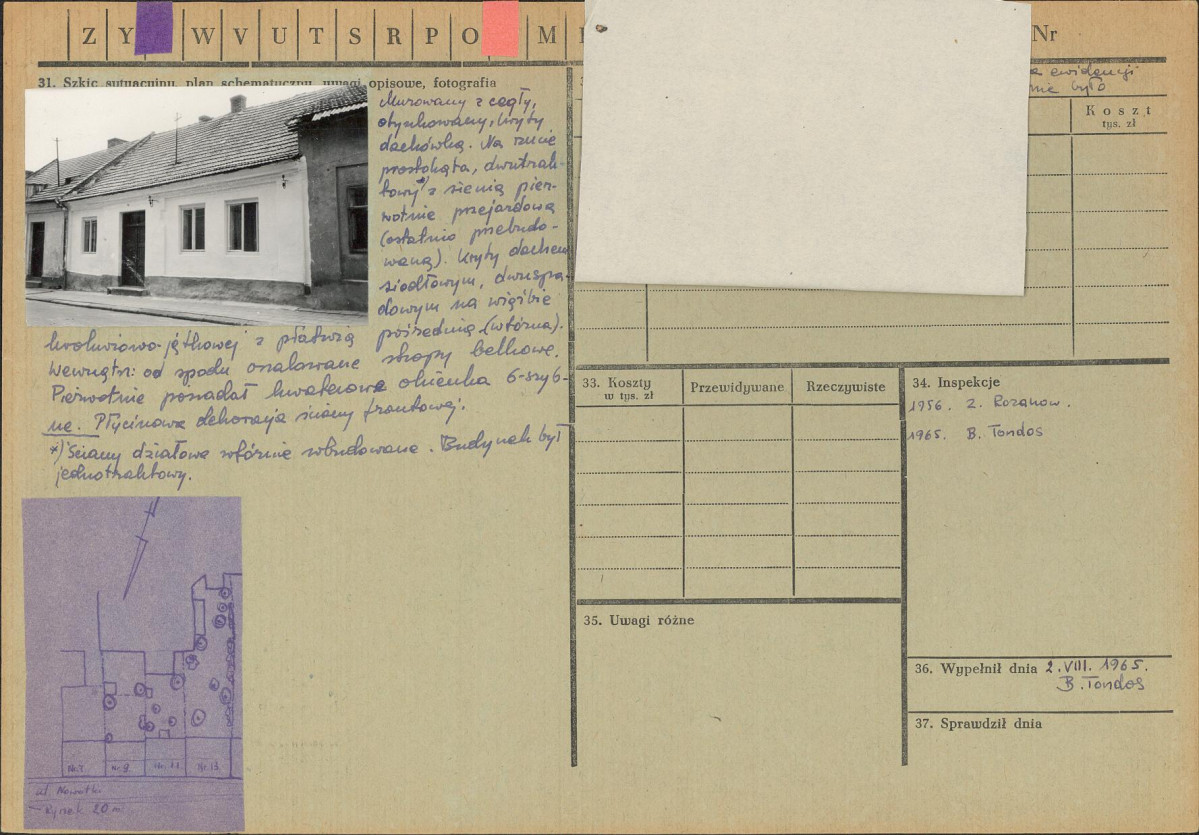 Z Y W V U T S R P O M Nr
31. Szkic sytuacyjny, plan schematyczny, uwagi opisowe, fotografia
Murowany z cegły,
otynkowany, kryty
dachówką. Na rzucie
prostokąta, dwutrak-
towy*) z sienią pier-
wotnie przejazdową
(ostatnio przebudo-
waną). Kryty dachem
siodłowym, dwuspa-
dowym na więźbie
krokwiowo-jętkowej z płatwią pośrednią (wtórna).
Wewnątrz: od spodu oszalowane stropy belkowe.
Pierwotnie posiadał kwaterowe okienka 6-szyb-
ne. Płycinowa dekoracja ściany frontowej.
*) Ściany działowe wtórnie wbudowane. Budynek był
jednotraktowy.
Nr.7. Nr.9. Nr.11 Nr.13
ul. Nowotki
Rynek 20 m
ewidencji
nie było
Koszt
tys. zł
33. Koszty
w tys. zł
Przewidywane
Rzeczywiste
34. Inspekcje
1956. Z. Rozanow.
1965. B. Tondos
35. Uwagi różne
36. Wypełnił dnia 2.VIII.1965.
B.Tondos
37. Sprawdził dnia